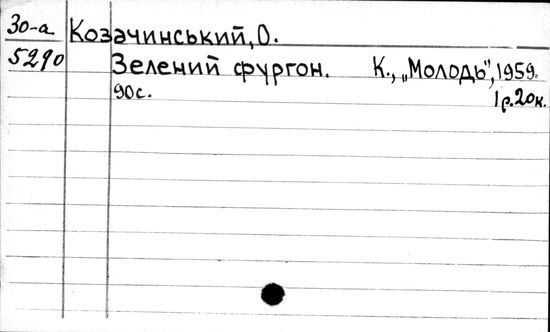 Зо-а Козачинський, О.
5290 Зелений фургон. К., „Молодь", 1959.
90с. 1р.20к.